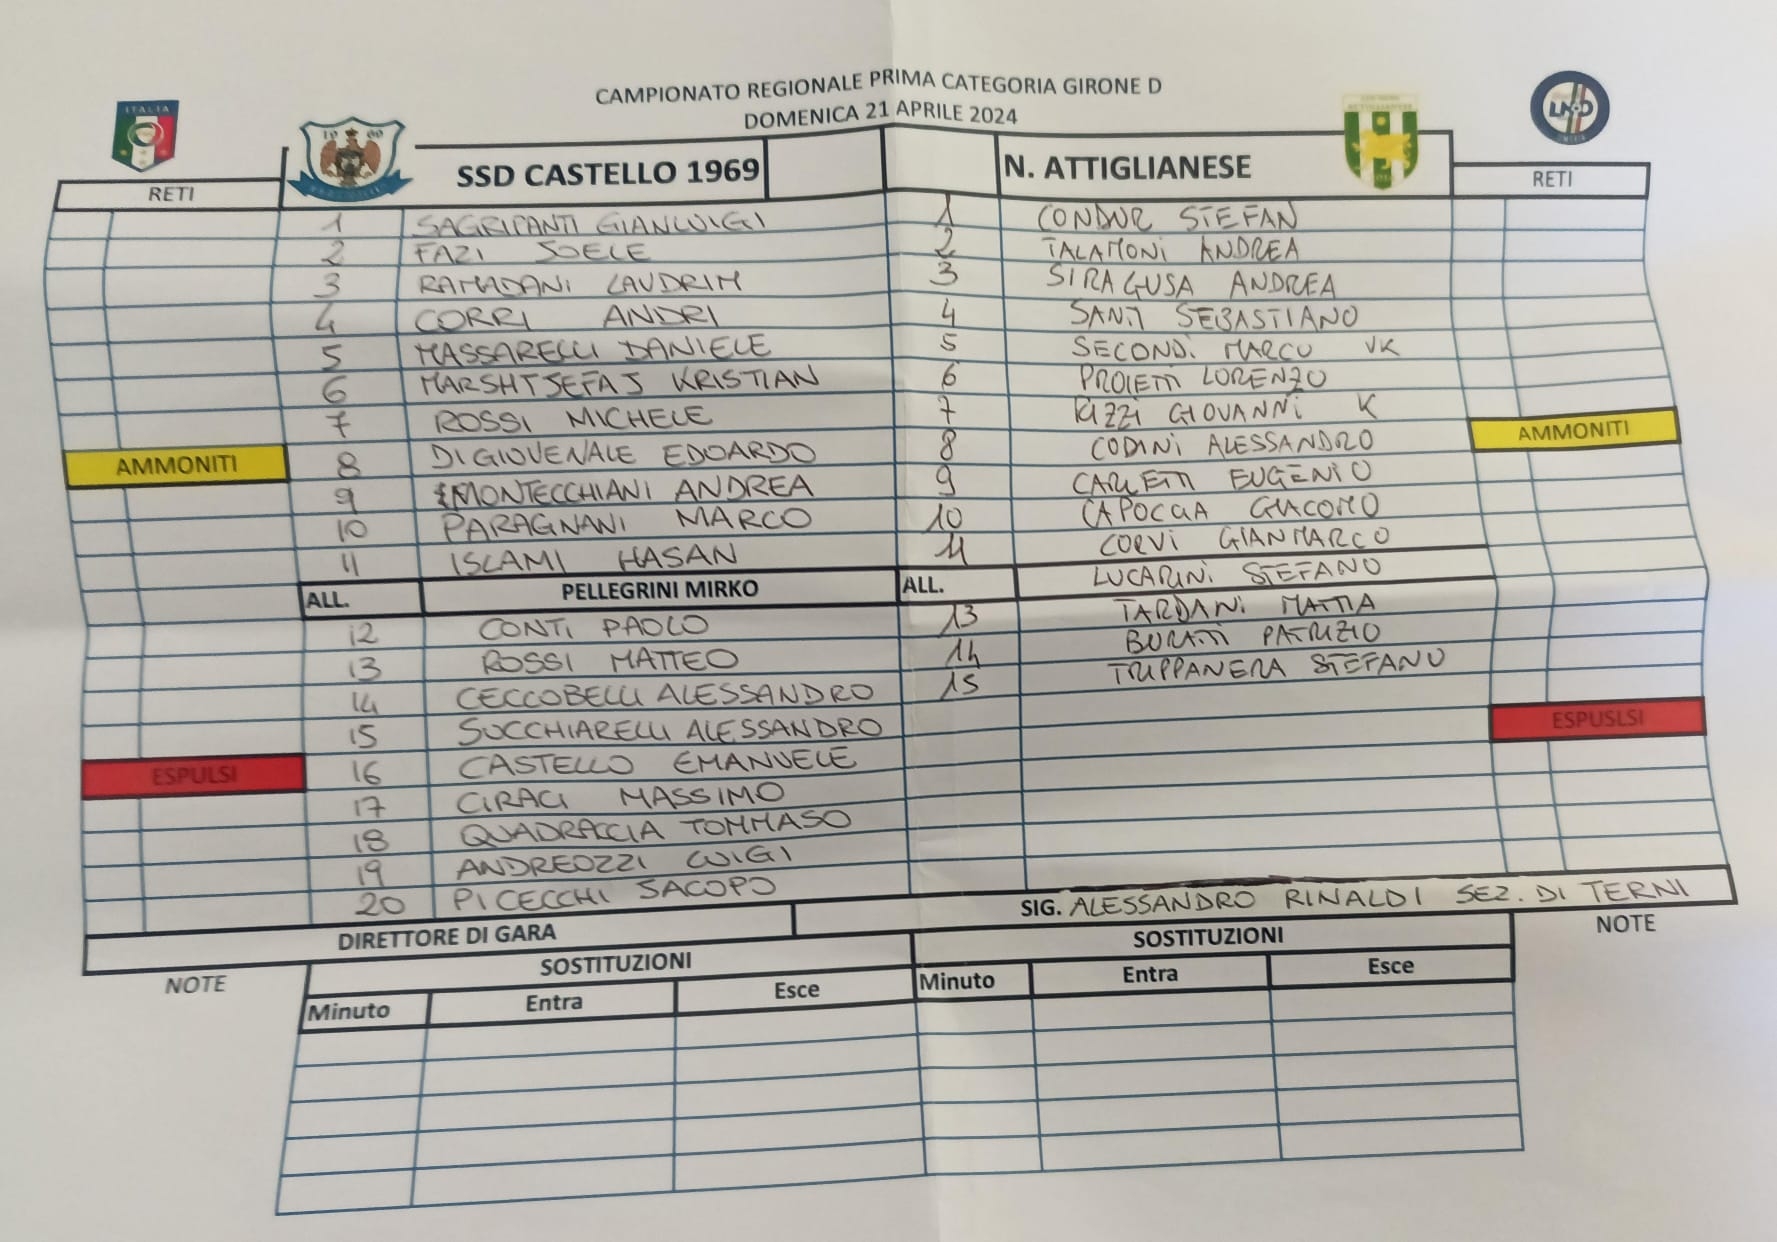 CAMPIONATO REGIONALE PRIMA CATEGORIA GIRONE D
DOMENICA 21 APRILE 2024
ITALIA
SSD CASTELLO 1969 N. ATTIGLIANESE
RETI RETI
1 SAGRIPANTI GIANLUIGI 1 CONDUR STEFAN
2 FAZI JOELE 2 TALAMONI ANDREA
3 RAMADANI LAUDRIM 3 SIRAGUSA ANDREA
4 CORRI ANDRI 4 SANTI SEBASTIANO
5 MASSARELLI DANIELE 5 SECONDI MARCO VK
6 MARSHTJEFAJ KRISTIAN 6 PROIETTI LORENZO
7 ROSSI MICHELE 7 RIZZI GIOVANNI K
AMMONITI 8 DI GIOVENALE EDOARDO 8 CODINI ALESSANDRO AMMONITI
9 MONTECCHIANI ANDREA 9 CARLETTI EUGENIO
10 PARAGNANI MARCO 10 CAPOCCIA GIACOMO
11 ISLAMI HASAN 11 CORVI GIANMARCO
ALL. PELLEGRINI MIRKO ALL. LUCARINI STEFANO
12 CONTI PAOLO 13 TARDANI MATTIA
13 ROSSI MATTEO 14 BURATTI PATRIZIO
14 CECCOBELLI ALESSANDRO 15 TRIPPANERA STEFANO
15 SUCCHIARELLI ALESSANDRO ESPUSLSI
ESPULSI 16 CASTELLO EMANUELE
17 CIRACI MASSIMO
18 QUADRACCIA TOMMASO
19 ANDREOZZI LUIGI
20 PICECCHI JACOPO
DIRETTORE DI GARA SIG. ALESSANDRO RINALDI SEZ. DI TERNI
NOTE SOSTITUZIONI SOSTITUZIONI NOTE
Minuto Entra Esce Minuto Entra Esce